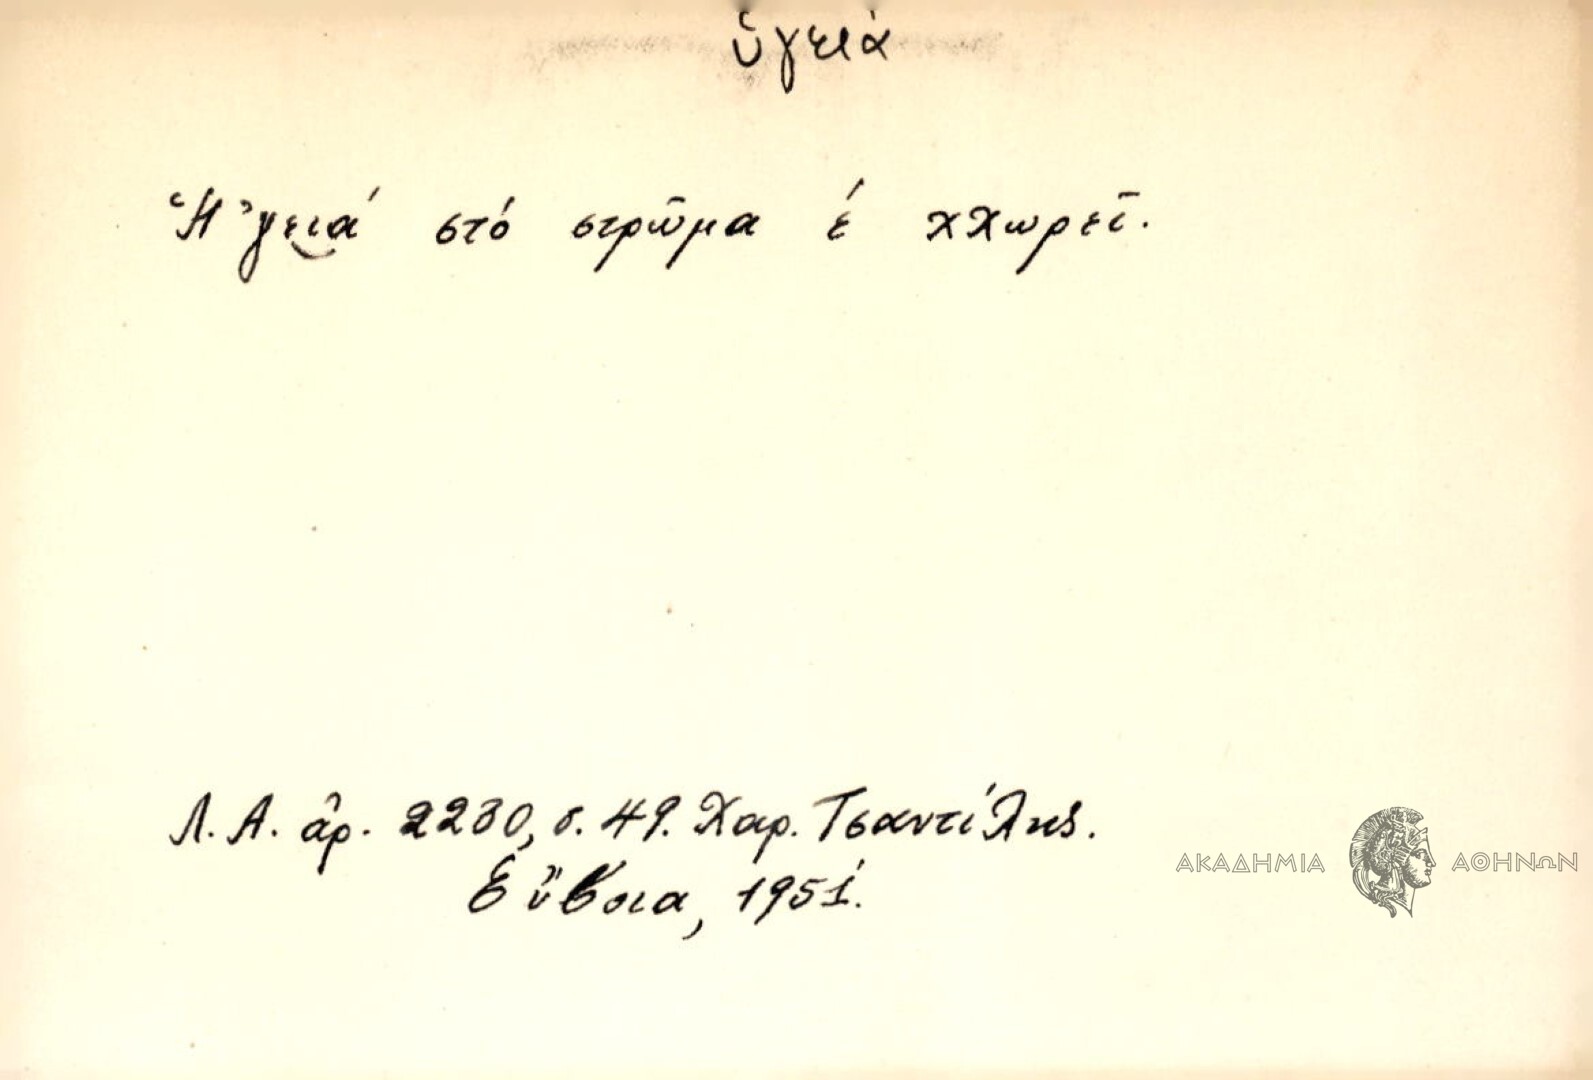 ὑγειά
Ἡ ᾽γειά στό στρῶμα έ χχωρεῖ.
Λ. Α. ἀρ. 2230, σ. 49. Χαρ. Τσαντίλης.
Εὔβοια, 1951.
ΑΚΑΔΗΜΙΑ ΑΘΗΝΩΝ